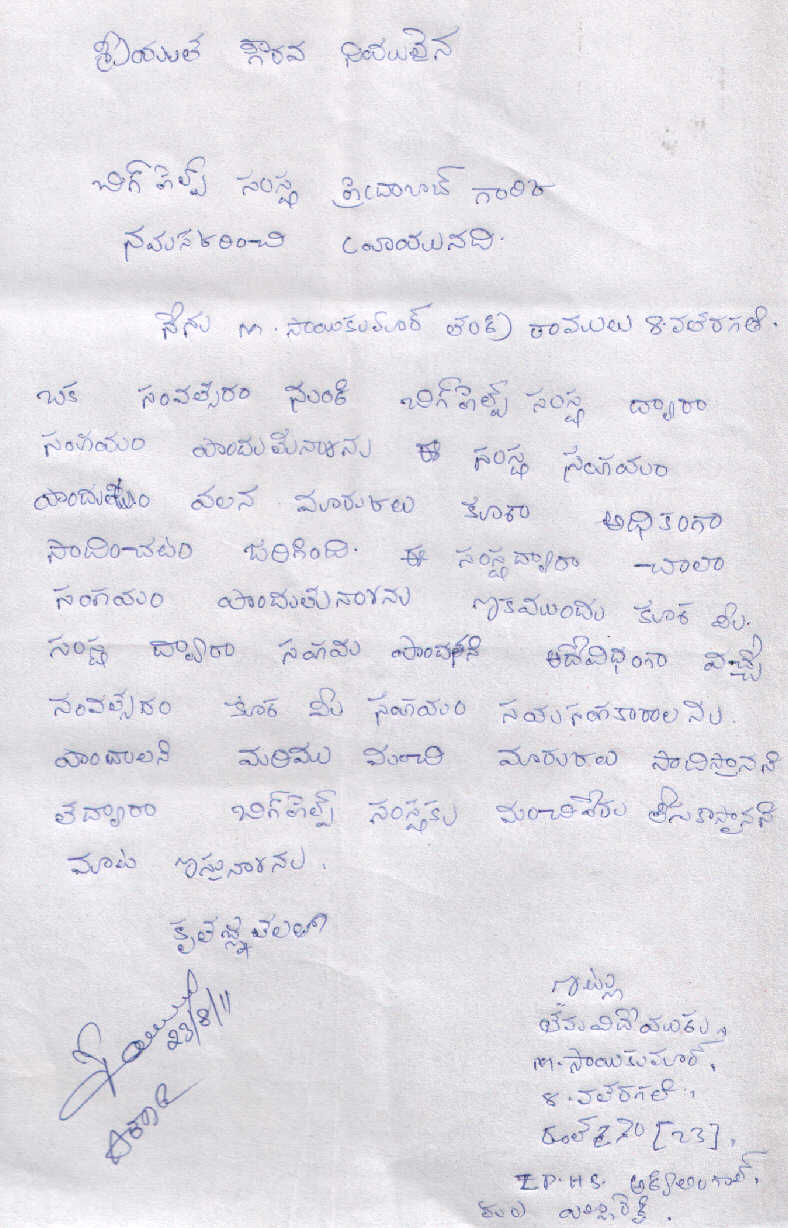 శ్రీయుత గౌరవ నీయులైన
బిగ్ హెల్ప్ సంస్థ గారికి
నమస్కరించి వ్రాయునది.
నేను m. సాయికుమార్ తండ్రి రాములు 8.వతరగతి.
ఒక సంవత్సరం నుండి బిగ్ హెల్ప్ సంస్థ ద్వారా
సహయం పొందుతున్నాను ఈ సంస్థ సహయం
పొందుట వలన మార్కులు కూడా అధికంగా
సాదించటం జరిగింది. ఈ సంస్థద్వారా చాలా
సహయం పొందుతున్నాను ఇకముందు కూడ మీ.
సంస్థ ద్వారా సహయ పొందాలని అదేవిధంగా వచ్చే
సంవత్సరం కూడ మీ సహయం సహయసహకారాలను.
పొందాలని మరియు మంచి మార్కులు సాదిస్తానని
తద్వారా బిగ్ హెల్ప్ సంస్థకు మంచిపేరు తీసుకొస్తానని
మాట ఇస్తున్నాను.
కృతజ్ఞతలతో
23/8/11
ఇట్లు
తమవిదేయుడు,
m. సాయికుమార్,
8.వతరగతి.,
రూల్ నెం [23],
Z.P.H.S.